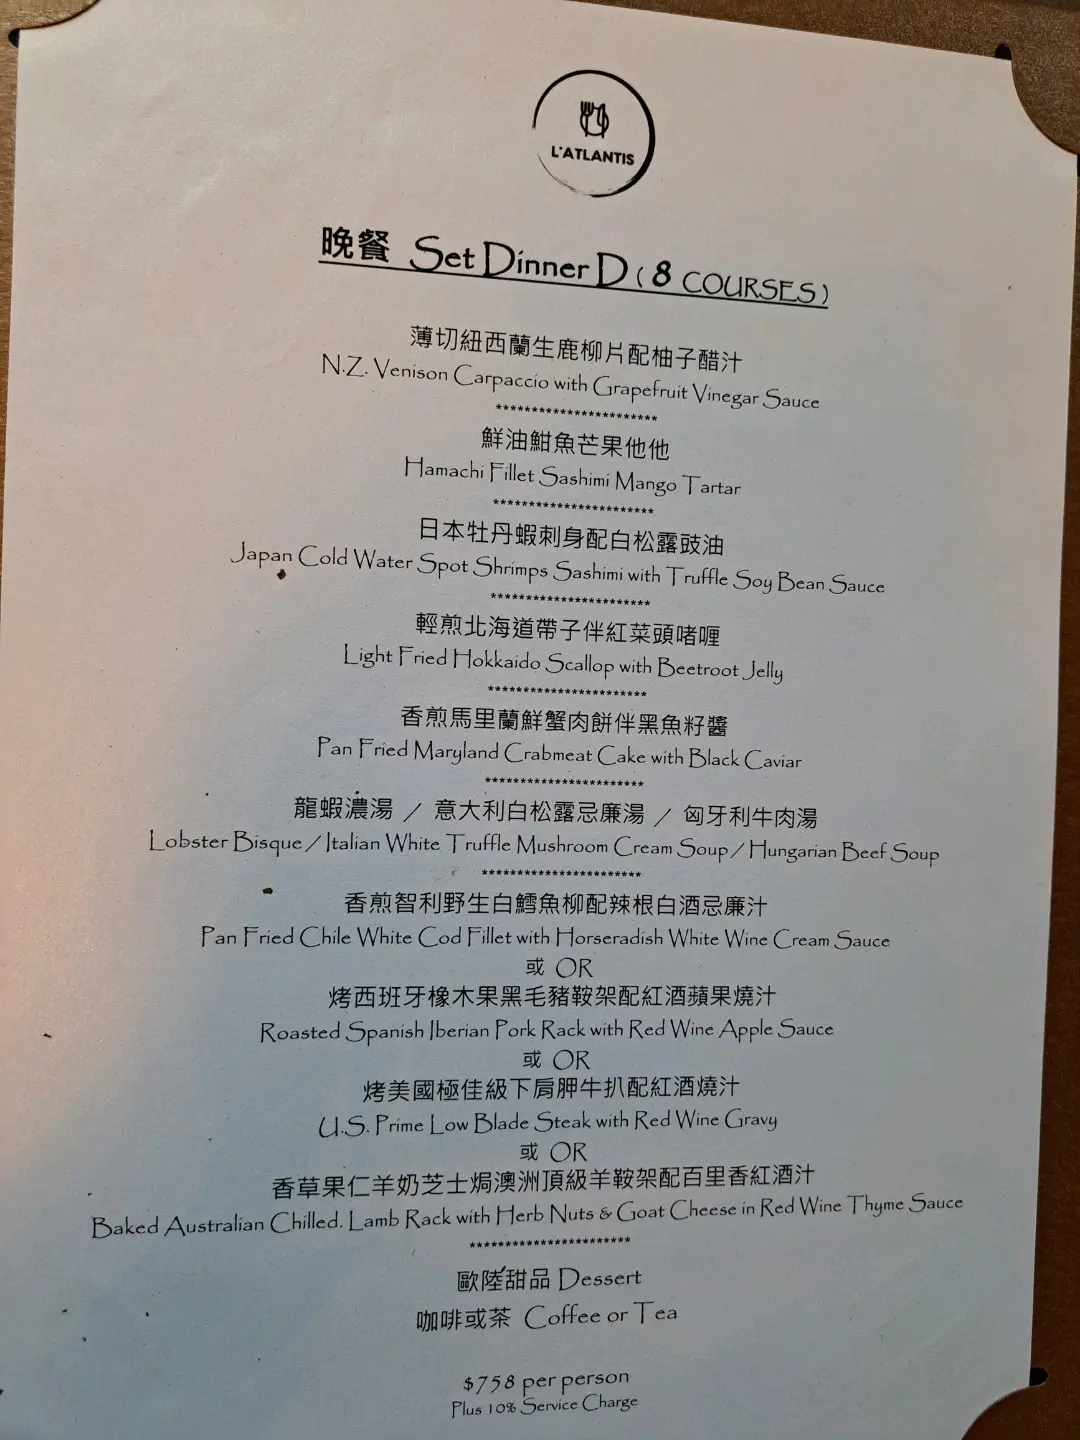 L'ATLANTIS
晚餐 Set Dinner D ( 8 COURSES )
薄切紐西蘭生鹿柳片配柚子醋汁
N.Z. Venison Carpaccio with Grapefruit Vinegar Sauce
***********************
鮮油魽魚芒果他他
Hamachi Fillet Sashimi Mango Tartar
***********************
日本牡丹蝦刺身配白松露豉油
Japan Cold Water Spot Shrimps Sashimi with Truffle Soy Bean Sauce
***********************
輕煎北海道帶子伴紅菜頭啫喱
Light Fried Hokkaido Scallop with Beetroot Jelly
***********************
香煎馬里蘭鮮蟹肉餅伴黑魚籽醬
Pan Fried Maryland Crabmeat Cake with Black Caviar
***********************
龍蝦濃湯 / 意大利白松露忌廉湯 / 匈牙利牛肉湯
Lobster Bisque / Italian White Truffle Mushroom Cream Soup / Hungarian Beef Soup
***********************
香煎智利野生白鱈魚柳配辣根白酒忌廉汁
Pan Fried Chile White Cod Fillet with Horseradish White Wine Cream Sauce
或 OR
烤西班牙橡木果黑毛豬鞍架配紅酒蘋果燒汁
Roasted Spanish Iberian Pork Rack with Red Wine Apple Sauce
或 OR
烤美國極佳級下肩胛牛扒配紅酒燒汁
U.S. Prime Low Blade Steak with Red Wine Gravy
或 OR
香草果仁羊奶芝士焗澳洲頂級羊鞍架配百里香紅酒汁
Baked Australian Chilled. Lamb Rack with Herb Nuts & Goat Cheese in Red Wine Thyme Sauce
***********************
歐陸甜品 Dessert
咖啡或茶 Coffee or Tea
$758 per person
Plus 10% Service Charge